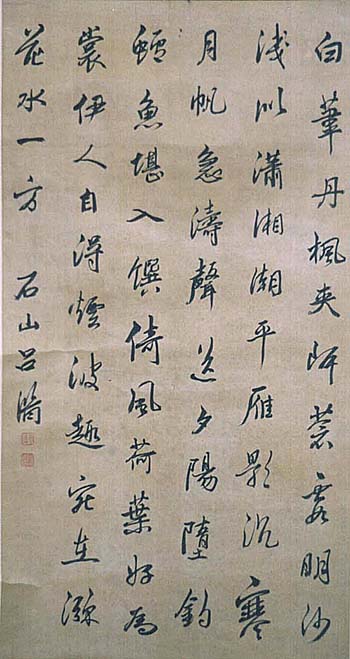 白葦丹楓夾岸蒼霞明沙
淺似瀟湘潮平雁影沉寒
月帆急濤聲送夕陽墮釣
鱸魚堪入饌倚風荷葉好為
裳伊人自得煙波趣宛在
花水一方 石山呂潛